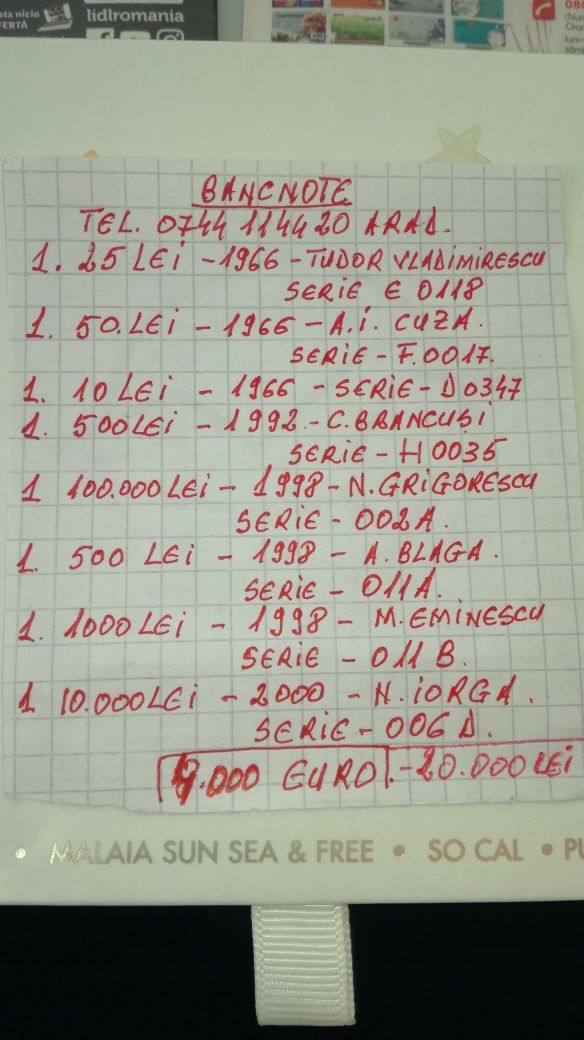 ata nicio
FERTĂ
lidlromania
080
(Nu
Oran
luni-
sâm
BANCNOTE
TEL. 0744 114420 ARAD.
1. 25 LEI - 1966 - TUDOR VLADIMIRESCU
SERIE E 0118
1. 50. LEI - 1966 - A.I. CUZA.
SERIE - F.0017.
1. 10 LEI - 1966 - SERIE - D0347
1. 500 LEI - 1992 - C. BRANCUȘI
SERIE - H 0035
1 100.000 LEI - 1998 - N. GRIGORESCU
SERIE - 002A.
1. 500 LEI - 1998 - A. BLAGA.
SERIE - 011A.
1. 1000 LEI - 1998 - M. EMINESCU
SERIE - 011 B.
1 10.000 LEI - 2000 - N. IORGA.
SERIE - 006 D.
4.000 EURO. - 20.000 LEI
• MALAIA SUN SEA & FREE • SO CAL • PU